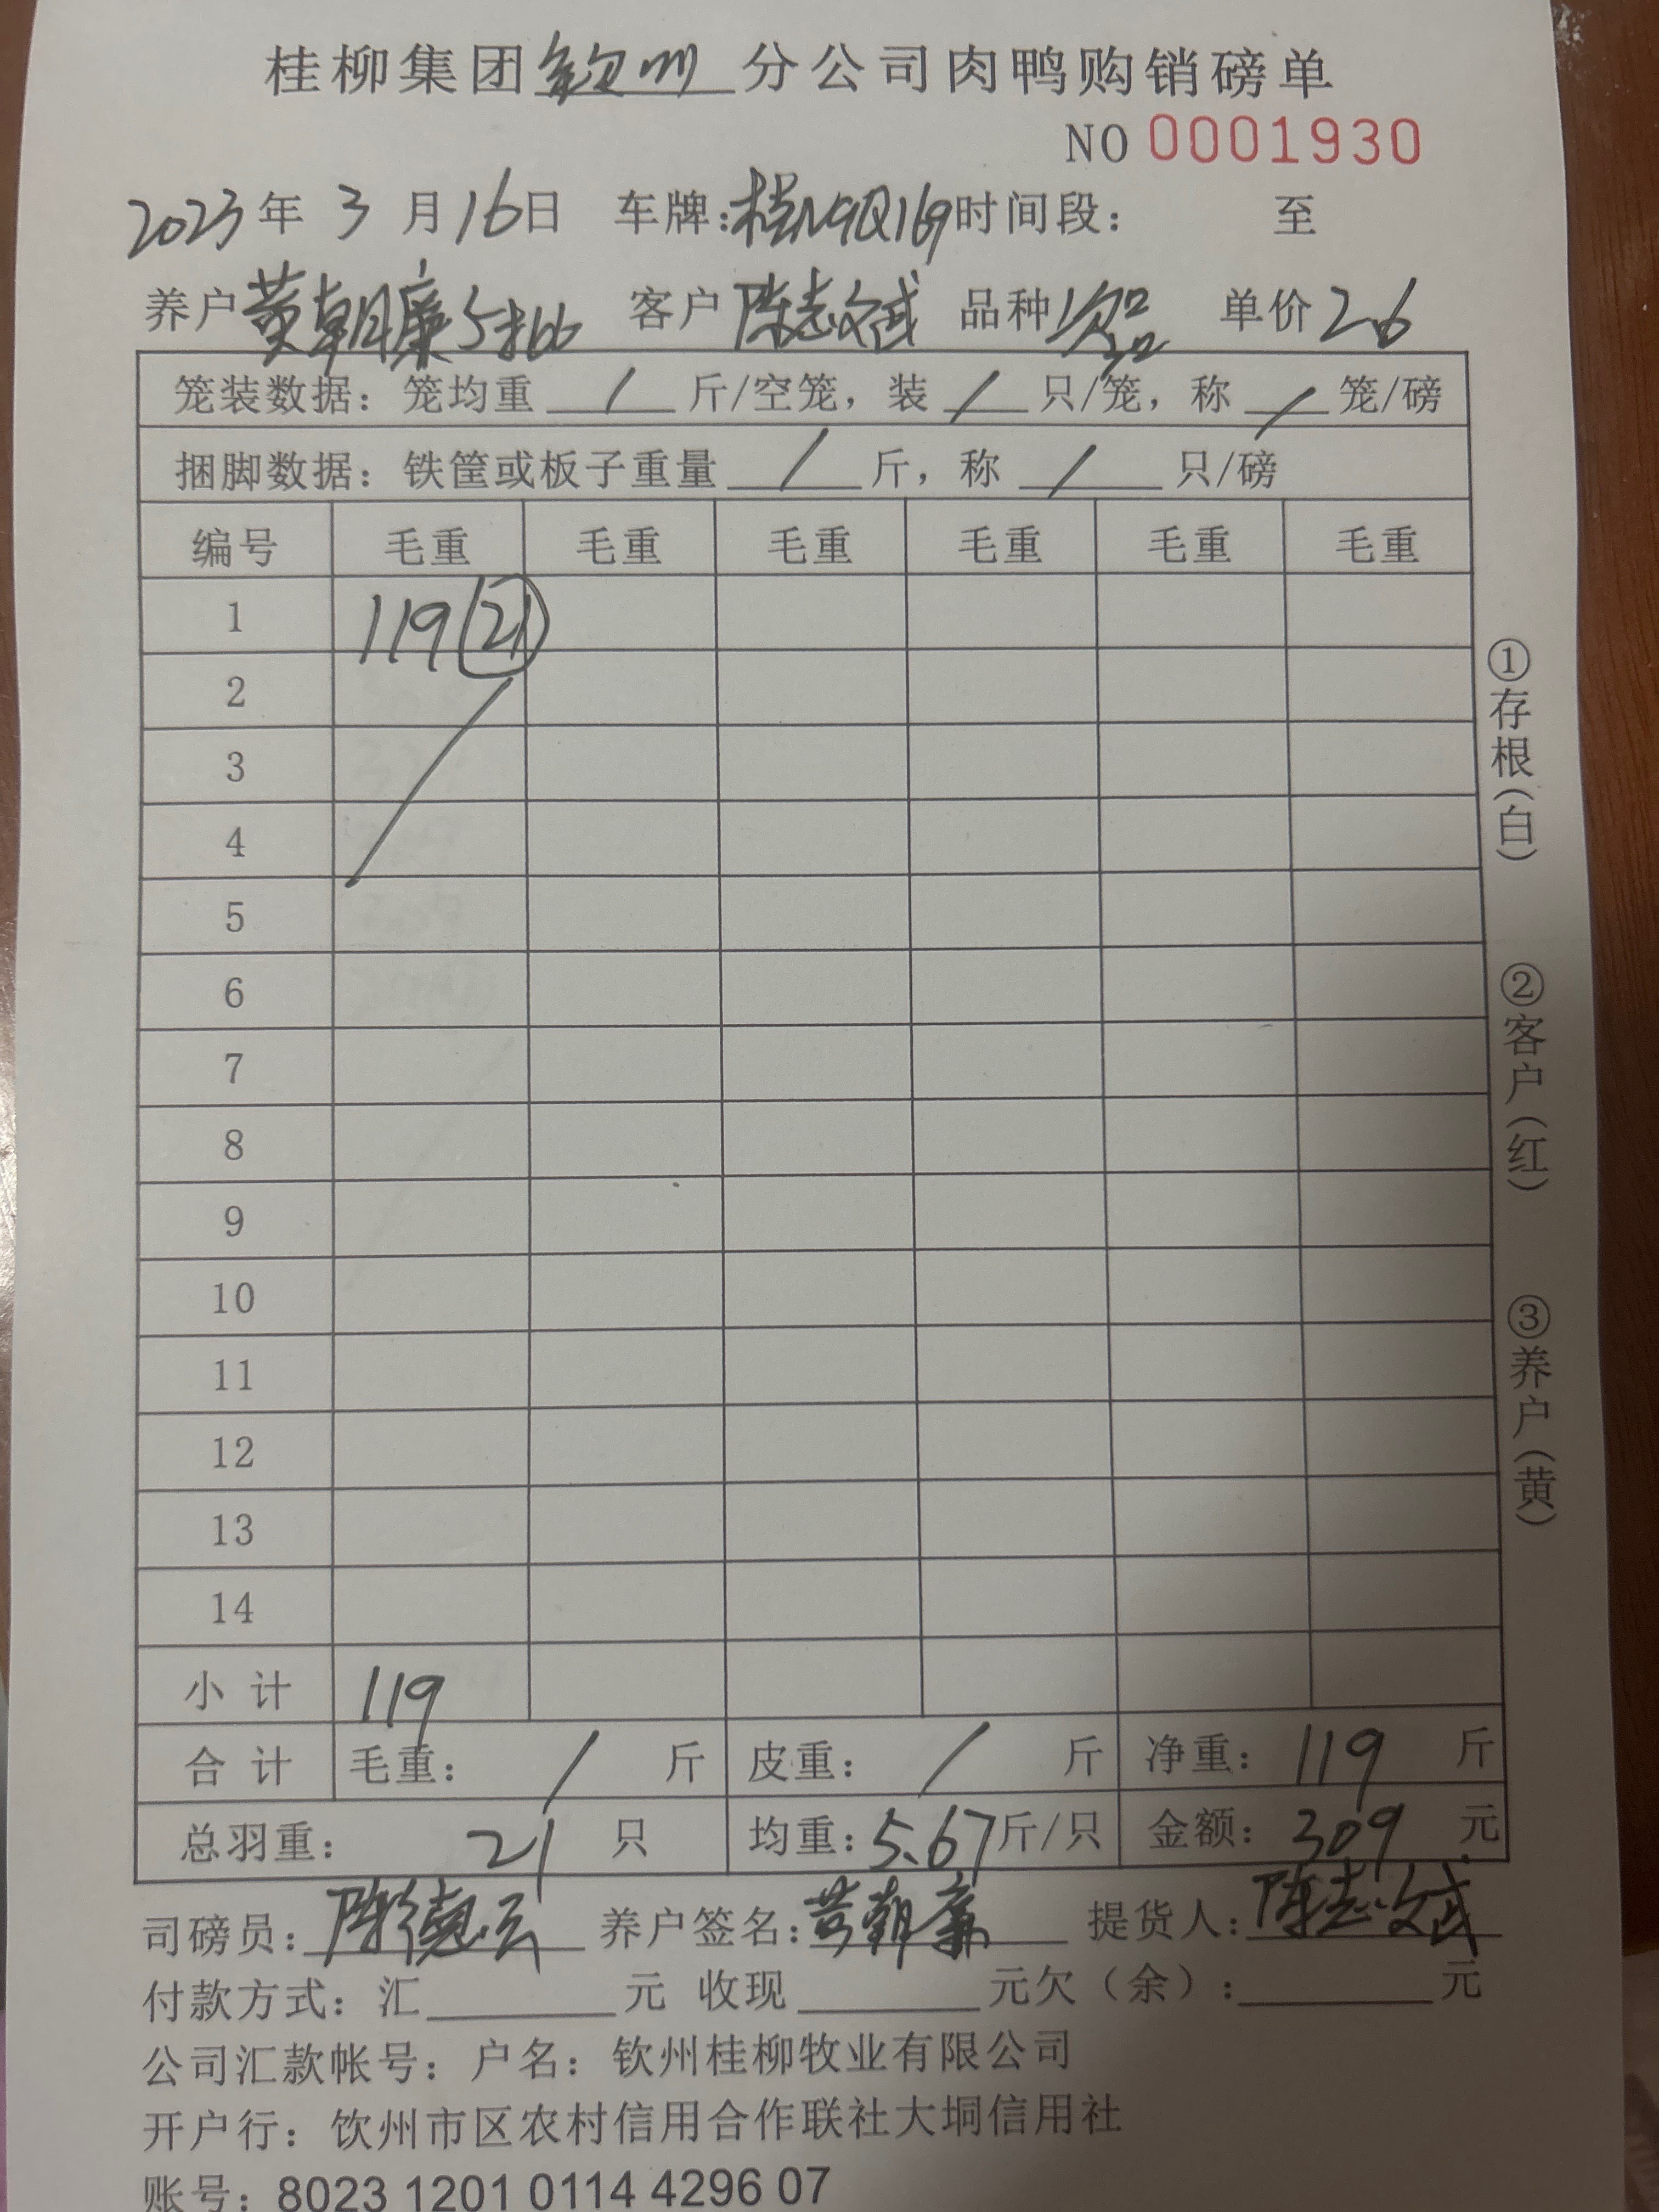 桂柳集团钦州分公司肉鸭购销磅单
NO 0001930
2023年 3 月16日 车牌:桂N9Q169时间段: 至
养户黄朝廉 客户陈志斌 品种次品 单价2.6
笼装数据: 笼均重 / 斤/空笼, 装 / 只/笼, 称 / 笼/磅
捆脚数据: 铁筐或板子重量 / 斤, 称 / 只/磅
编号 毛重 毛重 毛重 毛重 毛重 毛重
1 119 (21)
2
3
4
5
6
7
8
9
10
11
12
13
14
小 计 119
合 计 毛重: / 斤 皮重: / 斤 净重: 119 斤
总羽重: 21 只 均重:5.67斤/只 金额: 309 元
司磅员:陈德云 养户签名:黄朝廉 提货人:陈志斌
付款方式: 汇 元 收现 元欠(余): 元
公司汇款帐号: 户名: 钦州桂柳牧业有限公司
开户行: 钦州市区农村信用合作联社大垌信用社
账号: 8023 1201 0114 4296 07
①存根(白)
②客户(红)
③养户(黄)